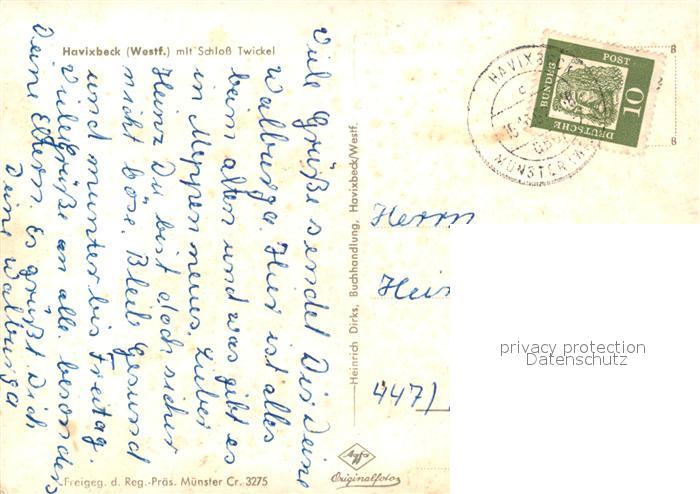 Havixbeck (Westf.) mit Schloß Twickel
Viele Grüße sendet Dir Deine
Walburga. Hier ist alles
beim alten und was gibt es
in Meppen neues. Lieber
Heinz Du bist doch sicher
nicht böse. Bleib Gesund
und munter bis Freitag.
Viele Grüße an alle. besonders
Deine Eltern. Es grüßt Dich
Deine Walburga
Freigeg. d. Reg.-Präs. Münster Cr. 3275
Heinrich Dirks, Buchhandlung, Havixbeck/Westf.
Agfa
Originalfoto
HAVIXBECK
MÜNSTER
DEUTSCHE
BUNDES
POST
10
B
B
Herrn
447)
privacy protection
Datenschutz